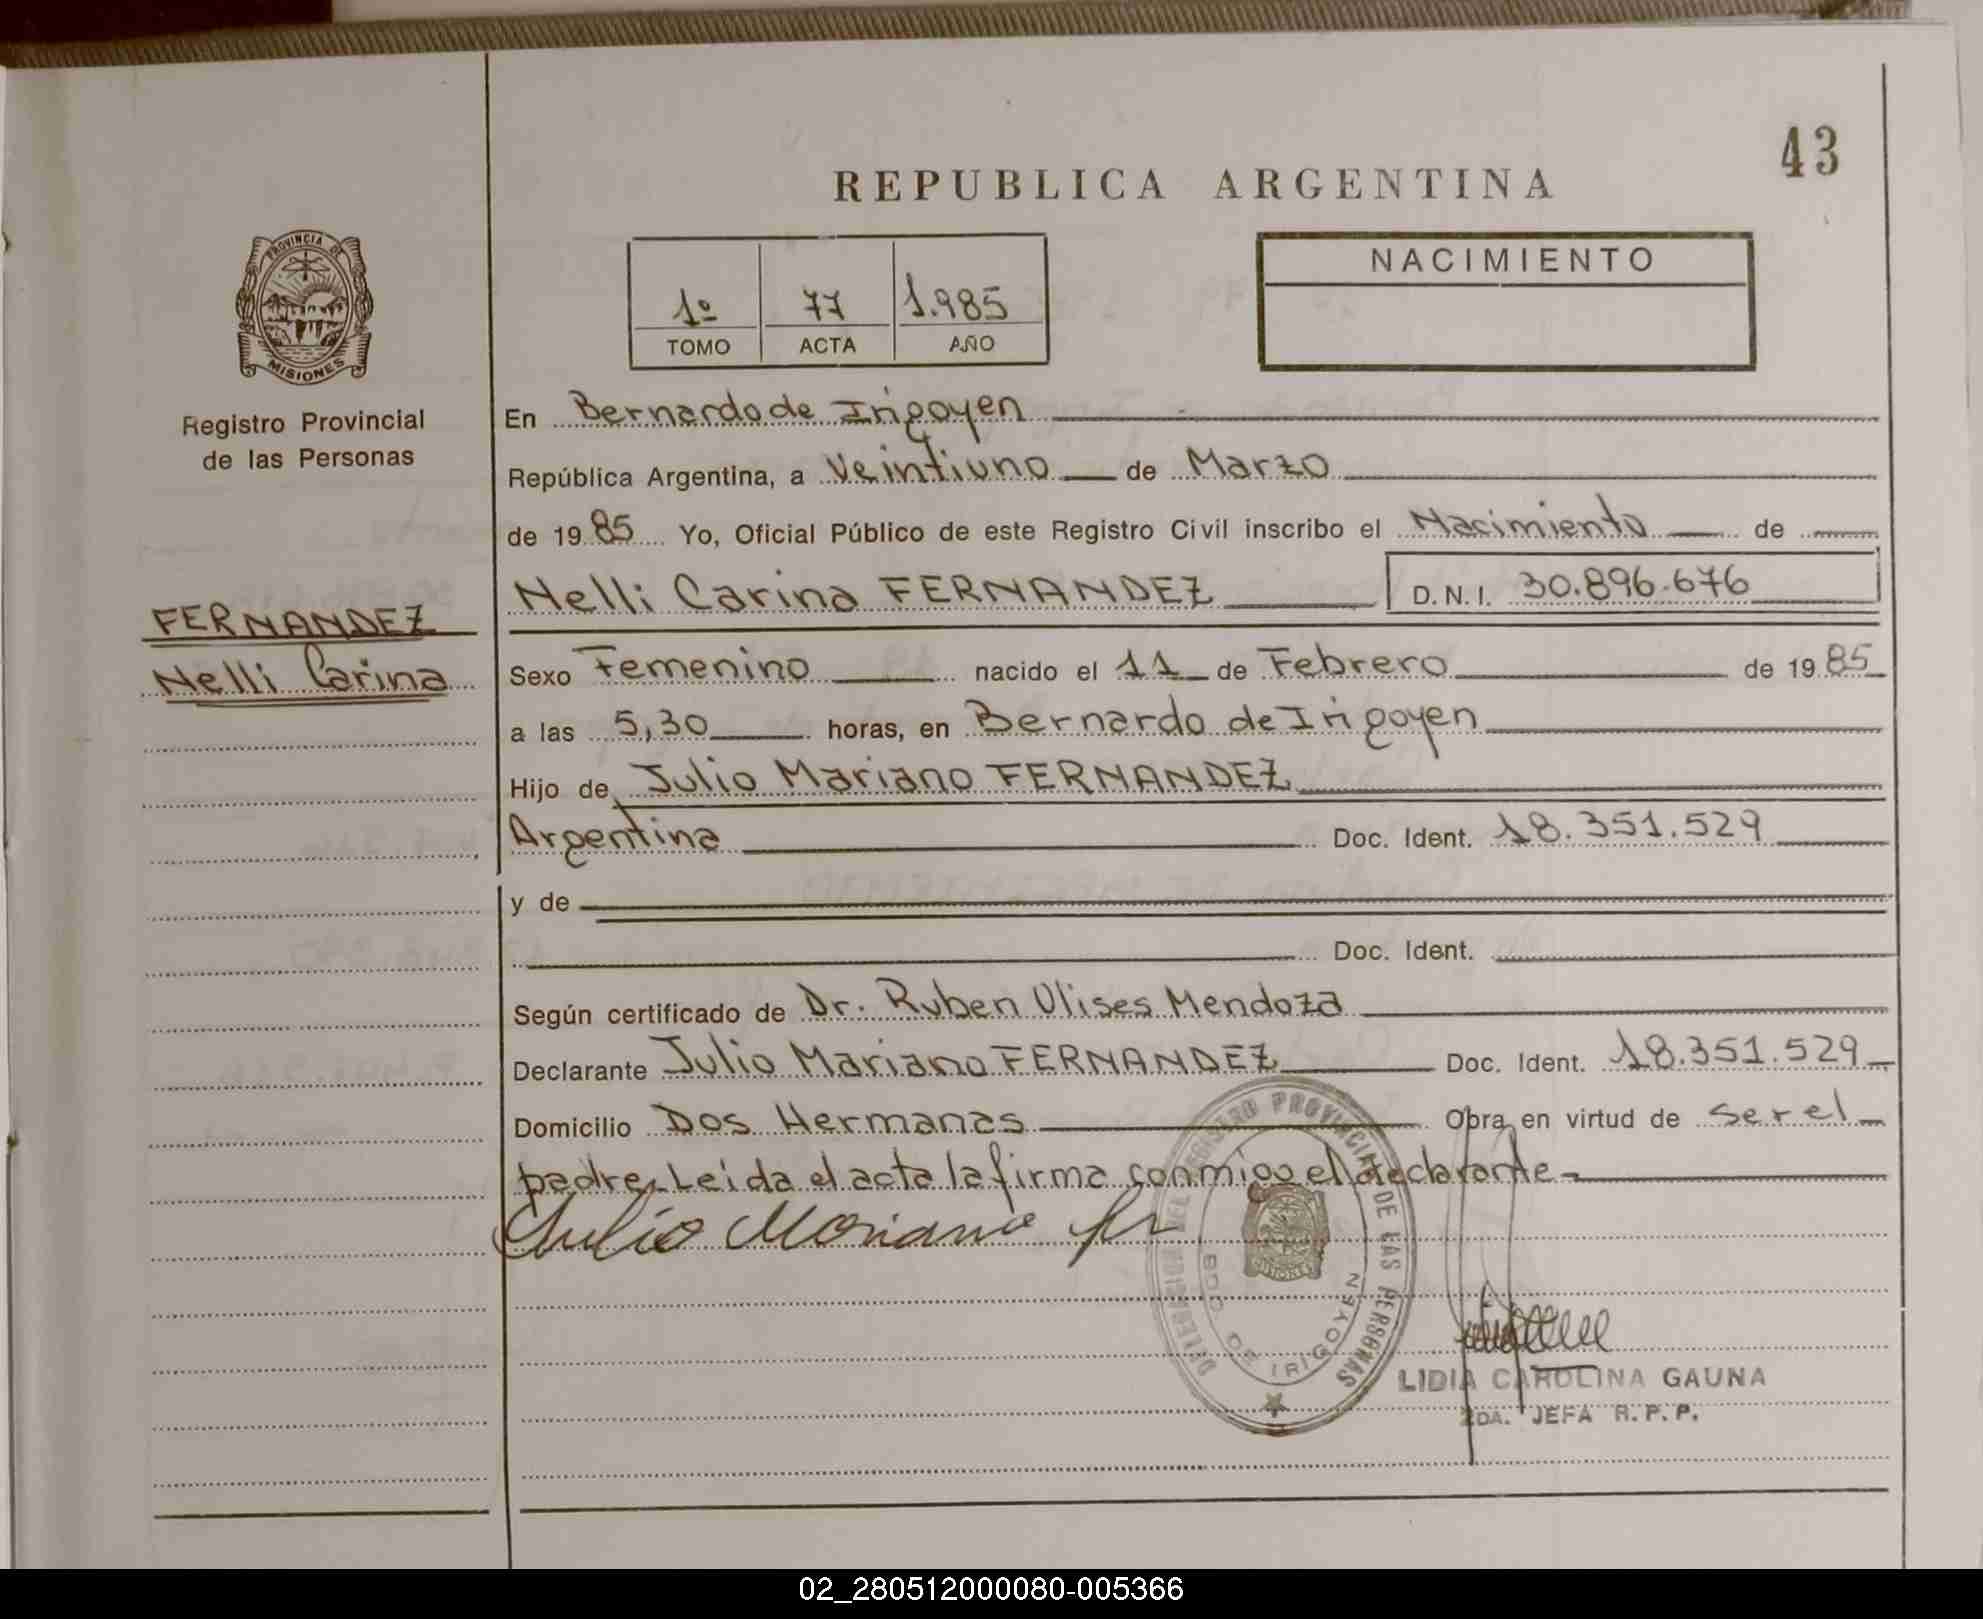 43
REPUBLICA ARGENTINA
PROVINCIA DE
MISIONES
Registro Provincial
de las Personas
1º 77 1.985
TOMO ACTA AÑO
NACIMIENTO
En Bernardo de Irigoyen
República Argentina, a Veintiuno de Marzo
de 1985 Yo, Oficial Público de este Registro Civil inscribo el Nacimiento de
Nelli Carina FERNANDEZ D.N.I. 30.896.676
FERNANDEZ
Nelli Carina
Sexo Femenino nacido el 11 de Febrero de 1985
a las 5,30 horas, en Bernardo de Irigoyen
Hijo de Julio Mariano FERNANDEZ
Argentina Doc. Ident. 18.351.529
y de
Doc. Ident.
Según certificado de Dr. Ruben Ulises Mendoza
Declarante Julio Mariano FERNANDEZ Doc. Ident. 18.351.529
Domicilio Dos Hermanas Obra en virtud de ser el
padre. Leida el acta la firma conmigo el declarante
Julio Mariano
DELEGACION DEL REGISTRO PROVINCIAL DE LAS PERSONAS
BDO. DE IRIGOYEN
MISIONES
LIDIA CAROLINA GAUNA
2DA. JEFA R.P.P.
02_280512000080-005366